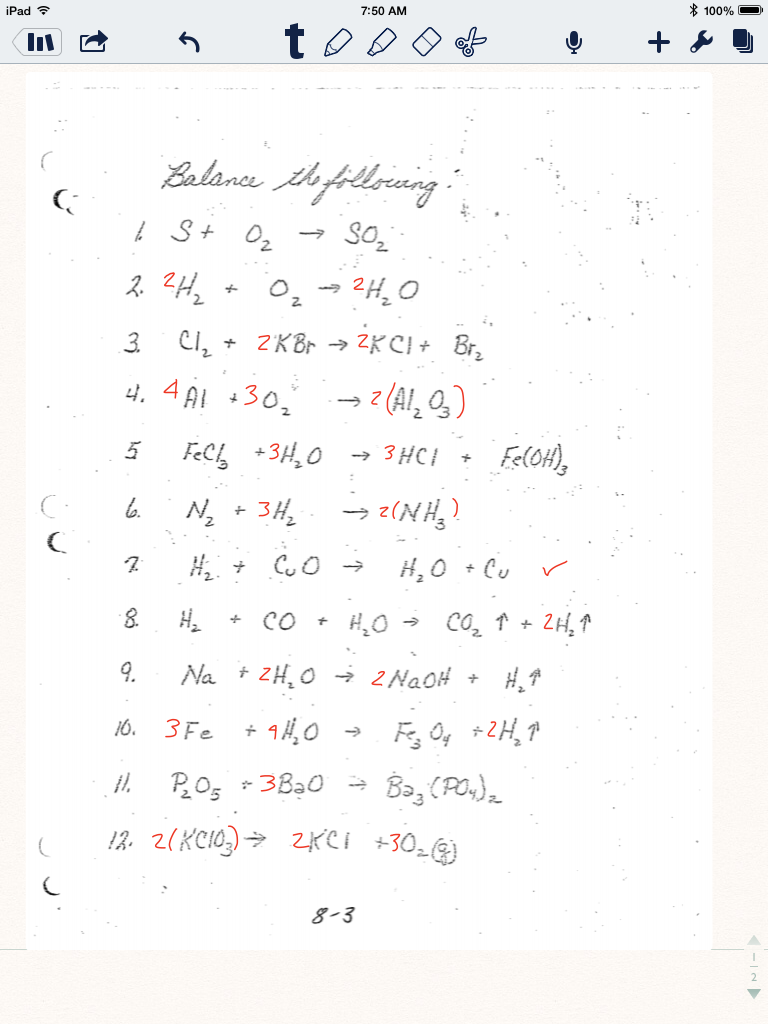 iPad 7:50 AM 100%
t
Balance the following:
1. S + O₂ → SO₂
2. 2H₂ + O₂ → 2H₂O
3. Cl₂ + 2KBr → 2KCl + Br₂
4. 4Al + 3O₂ → 2(Al₂O₃)
5 FeCl₃ + 3H₂O → 3HCl + Fe(OH)₃
6. N₂ + 3H₂ → 2(NH₃)
7. H₂ + CuO → H₂O + Cu ✓
8. H₂ + CO + H₂O → CO₂ ↑ + 2H₂↑
9. Na + 2H₂O → 2NaOH + H₂↑
10. 3Fe + 4H₂O → Fe₃O₄ + 2H₂↑
11. P₂O₅ + 3BaO → Ba₃(PO₄)₂
12. 2(KClO₃) → 2KCl + 3O₂(g)
8-3
1
2